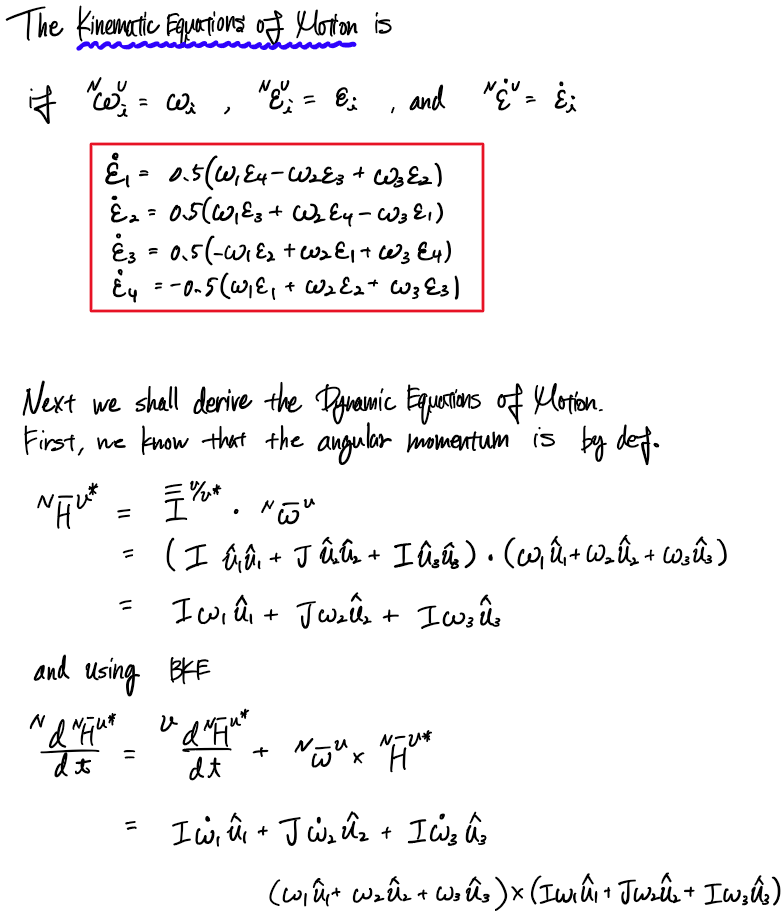 The Kinematic Equations of Motion is
if ᴺωᵢᵁ = ωᵢ , ᴺεᵢᵁ = εᵢ , and ᴺε̇ᵁ = ε̇ᵢ
ε̇₁ = 0.5(ω₁ε₄ − ω₂ε₃ + ω₃ε₂)
ε̇₂ = 0.5(ω₁ε₃ + ω₂ε₄ − ω₃ε₁)
ε̇₃ = 0.5(−ω₁ε₂ + ω₂ε₁ + ω₃ε₄)
ε̇₄ = −0.5(ω₁ε₁ + ω₂ε₂ + ω₃ε₃)
Next we shall derive the Dynamic Equations of Motion.
First, we know that the angular momentum is by def.
ᴺH̄ᵁ* = I̿ᵁ/ᵁ* · ᴺω̄ᵁ
= (I û₁û₁ + J û₂û₂ + I û₃û₃) · (ω₁û₁ + ω₂û₂ + ω₃û₃)
= Iω₁û₁ + Jω₂û₂ + Iω₃û₃
and using BKE
ᴺd ᴺH̄ᵁ*/dt = ᵁd ᴺH̄ᵁ*/dt + ᴺω̄ᵁ × ᴺH̄ᵁ*
= Iω̇₁û₁ + Jω̇₂û₂ + Iω̇₃û₃
(ω₁û₁ + ω₂û₂ + ω₃û₃) × (Iω₁û₁ + Jω₂û₂ + Iω₃û₃)